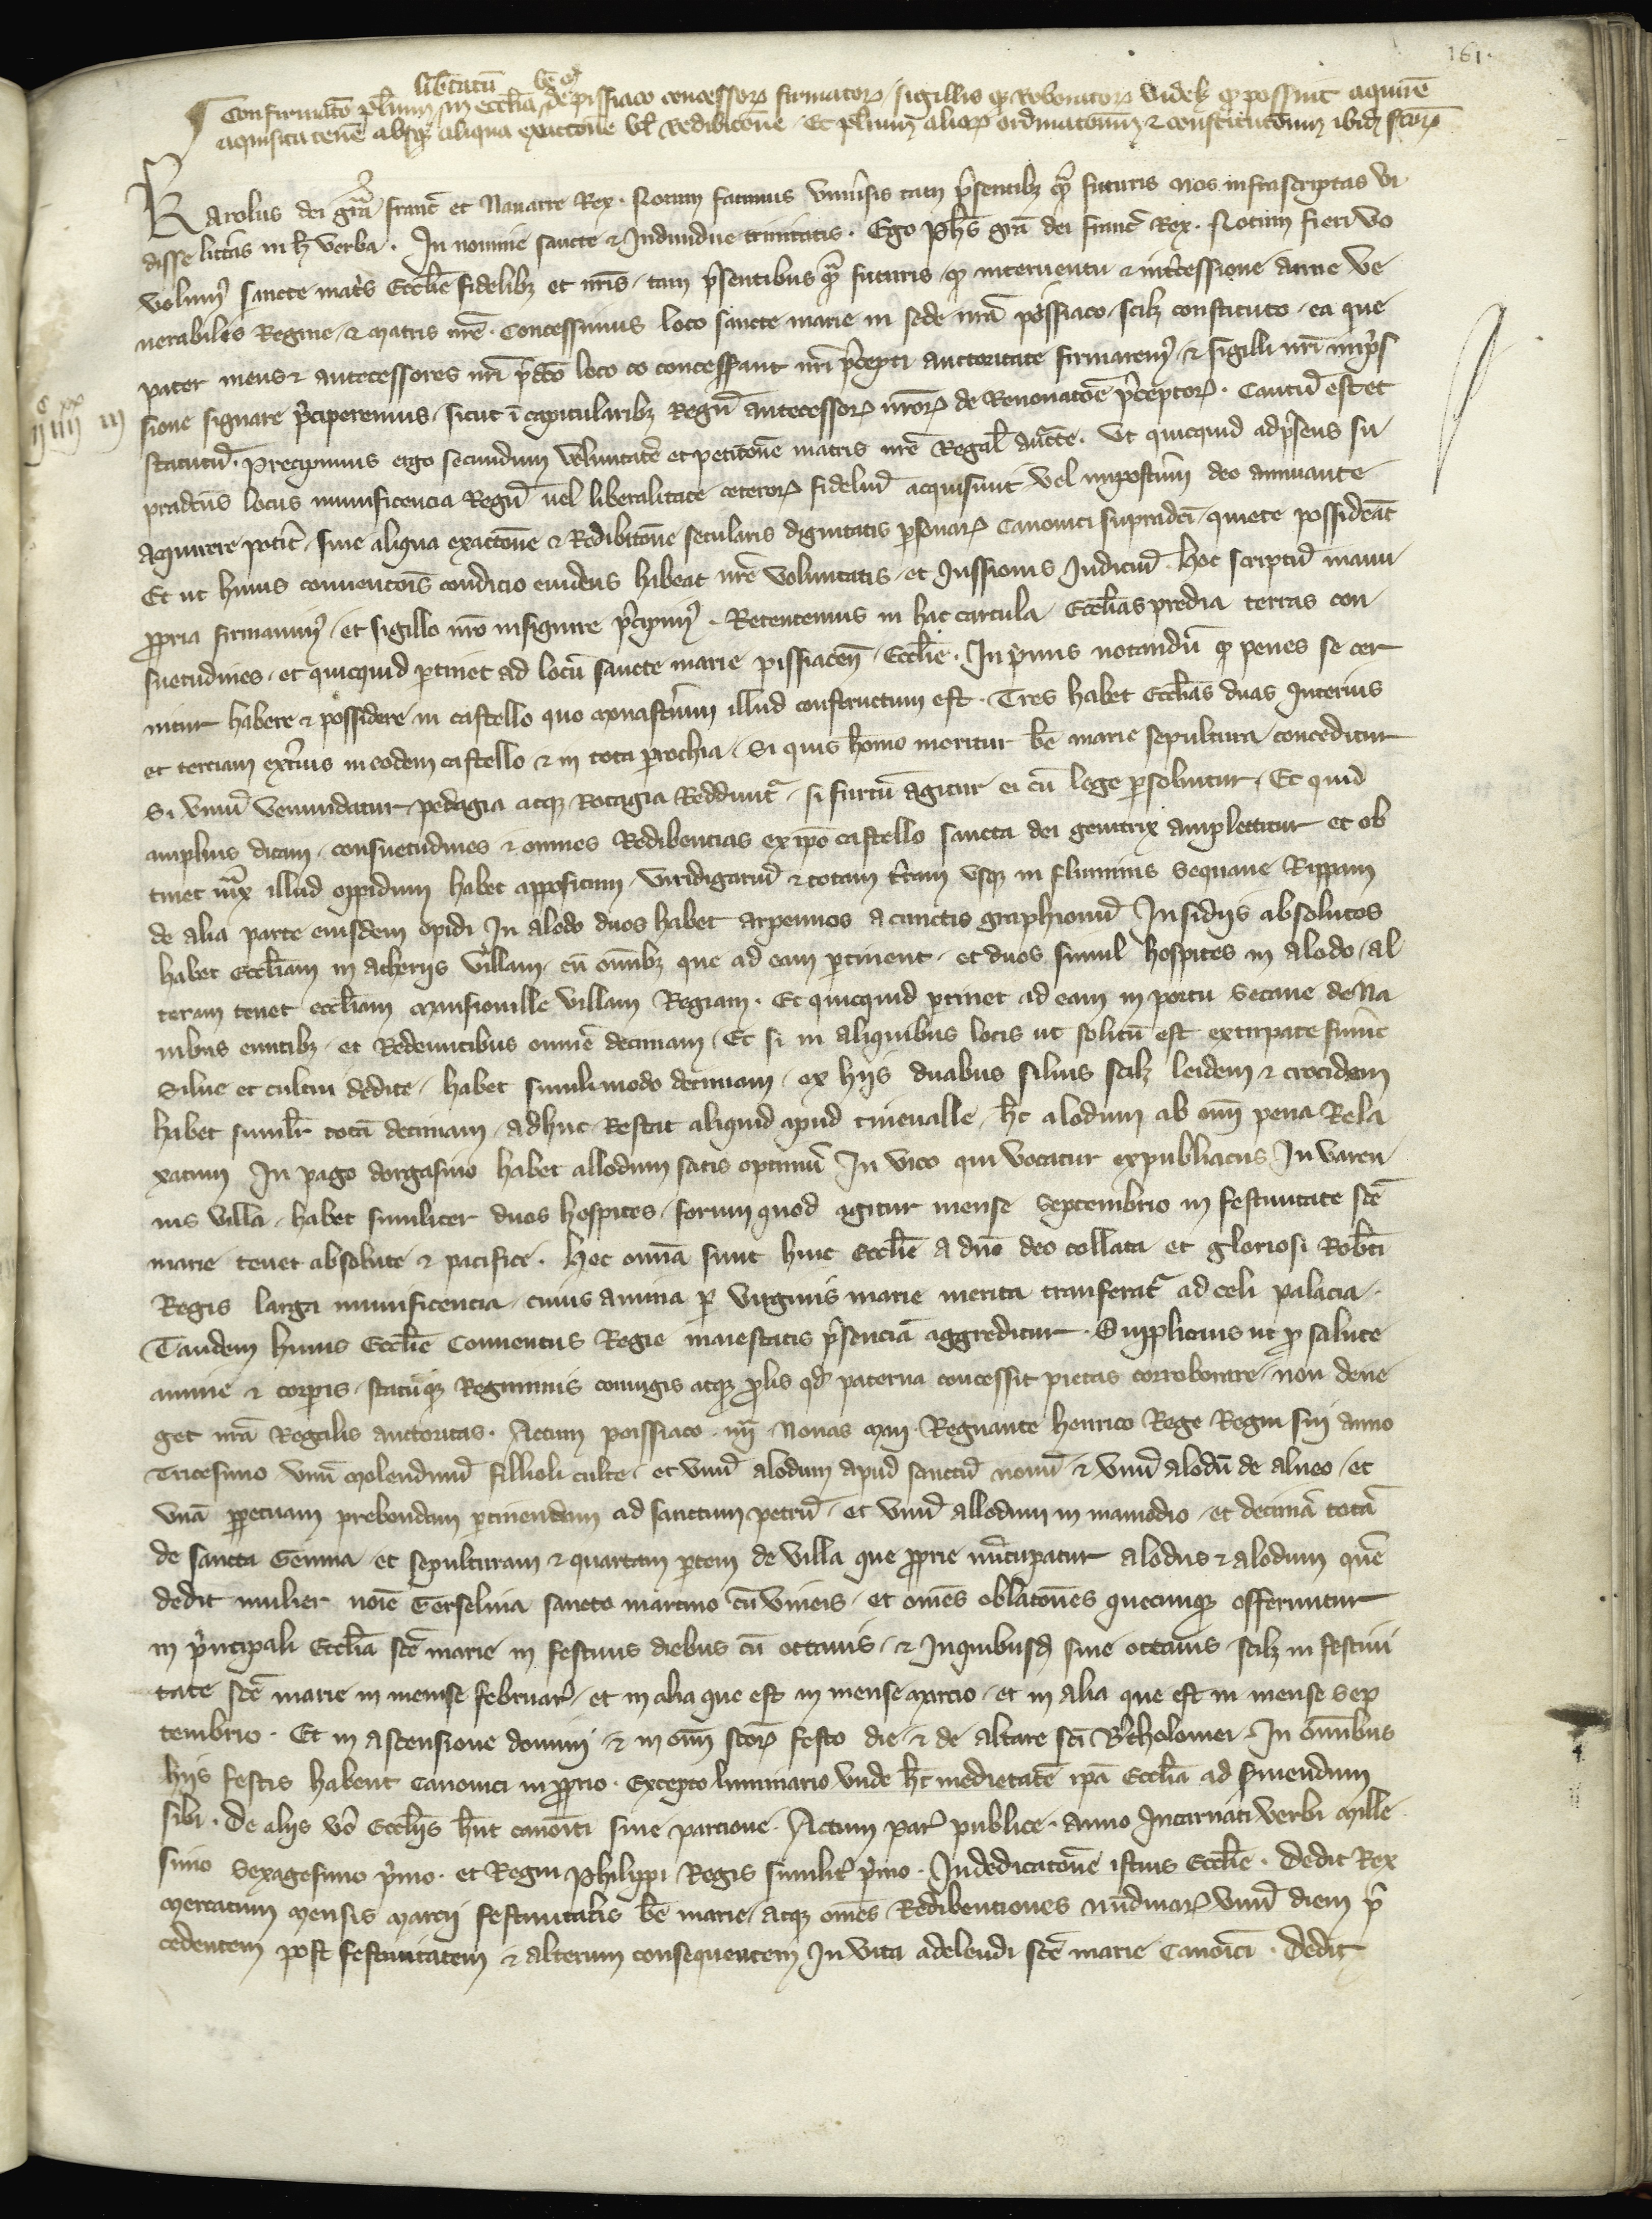 161.
libertatū be m̄
Confirmatō pluriūm in ecclīa de pissiaco concessorꝝ firmatorꝝ sigillis qꝫ roboratorꝝ videlꝫ qꝫ possint aquirē
aquisita tenē absqꝫ aliqua exactōne vel redibitōne. Et plurium aliorꝝ ordinatonū ⁊ constitutōnum ibidꝫ factorꝝ
Karolus dei grā franc̄ et Nauarre Rex. Notum facimus vniuīsis tam p̄sentibꝫ qᷓ futuris nos infrascriptas vi
disse litt̄as in h̄ verba. In nomine sancte ⁊ Indiuidue trinitatis. Ego Ph̄s grā dei franc̄ Rex. Notum fieri vo
volumꝰ sancte mat̄s Ecclīe fidelibꝫ et nr̄is, tam p̄sentibus qᷓ futuris, qꝫ interuentu ⁊ int̄cessione anne ve
nerabilis Regine, ⁊ matris nr̄e. Concessimus loco sancte marie in sede nr̄a possiaco scilꝫ constituto, ea que
pater meus ⁊ antecessores nr̄i p̄dc̄o loco co concesserant nr̄i p̄cepti auctoritate firmaremꝰ, ⁊ sigilli nr̄i imp̄s
sione signare p̄ciperemus, sicut ī capitularibꝫ Regū antecessorꝝ nr̄orꝝ de Renouatōe p̄ceptorꝝ. Cautū est et
statutū. Precipimus ergo secundum volūtatē et petitōne matris nr̄e Regal̄ auctē. Ut quicquid ad p̄sens su
pradcūs locus munificencia Regū uel liberalitate ceterorꝝ fideliū acquisiuit vel impost̄m deo annuante
Aquirere potīt, sine aliqua exactōne ⁊ Redibitōne secularis dignitatis p̄sonarꝝ Canonici supradcī, quiete possideāt
Et ut huius conuentōis condicio euidens habeat nr̄e voluntatis, et Iussionis Indiciū. hoc scriptū manu
ꝓpria firmauimꝰ, et sigillo nr̄o insignire p̄cipimꝰ. Retentemus in hac cartula Ecclīas predia terras con
suetudines, et quicquid ꝑtinet ad locū sancte marie pissiacen̄ Ecclīe. In p̄mis notandū qꝫ penes se cer
nitur habere ⁊ possidere in castello quo monast̄ium illud constructum est. Tres habet Ecclīas duas Interius
et terciam ext̄ius in eodem castello ⁊ in tota ꝑrochia. Si quis homo moritur bē marie sepultura conceditur
Si vinū venundatur pedagia atqꝫ Rotagia Reddunt̄, si furtū agitur ei cū lege ꝑsoluitur. Et quid
amplius dicam, consuetudines ⁊ omnes Redibencias ex ip̄o castello sancta dei genitrix amplectitur et ob
tinet iuxᷓ illud oppidum habet appositum, viridigariū ⁊ totam t̄ram vsqꝫ in fluminis Sequane Rippam
de alia parte eiusdem opidi In alodo duos habet arpennos a cunctis graphionū Insidiis absolutos
habet Ecclīam in atheriis villam, cū omībꝫ que ad eam ꝑtinent, et duos simul hospites in alodo, al
teram tenet ecclīam mansionille villam Regiam. Et quicquid ꝑtinet ad eam in portu Secane de Na
uibus euntibꝫ, et Redeuntibus omnē decimam, Et si in aliquibus locis ut solitū est extirpate fuīnt
Silue et cultui dedite, habet simili modo decimam, ex hiis duabus siluis scilꝫ leidem ⁊ crocidem
habet simil̄r totā decimam, adhuc Restat aliquid apud tineualle, hc̄ alodum ab om̄i pena Rela
xatum In pago dorgasino habet allodum satis optimū In vico qui vocatur expubliacus In varen
nis villa, habet similiter duos hospites, forum quod agitur mense Septembrio in festiuitate scē
marie tenet absolute ⁊ pacifice. Hec omīa sunt huic Ecclīe a dn̄o deo collata et gloriosi Robt̄i
Regis larga munificencia, cuius anima ꝑ virginis marie merita transferat̄ ad celi palacia.
Tandem huius Ecclīe Conuentus Regie maiestatis p̄senciā aggreditur. Supplicius ut ꝓ salute
anime ⁊ corporis, statuqꝫ Regiminis coniugis atqꝫ ꝓlis qđ paterna concessit pietas corroborare, non dene
get nr̄a Regalis auctoritas. Actum poissiaco iiij Nonas maij Regnante henrico Rege Regni sui anno
Tricesimo vnū molendinū fillioli culte, et vnū alodum apud sanctū nonū ⁊ vnū alodū de alneo, et
vnā ꝑpetuam prebendam ꝑtinendam ad sanctum petrū, et vnū allodum in mamodio, et decimā totā
de sancta Gemma et sepulturam ⁊ quartam ꝑtem de villa que ꝓprie nūcupatur alodus ⁊ alodum quē
dedit mulier noīe Gerselina sancto martino cū vineis, et omēs oblatōnes quecunqꝫ offeruntur
in p̄ncipali Ecclīa scē marie in festiuis diebus cū octauis, ⁊ In quibusdꝫ sine octauis scilꝫ in festiui
tate scē marie in mense februar̄, et in alia que est in mense marcio, et in alia que est in mense Sep
tembrio. Et in ascensione domini, ⁊ in om̄i scōrꝝ festo die, ⁊ de altare scī Bartholomei. In omībus
hiis festis habent Canonici in ꝓprio. Excepto luminario vnde hc̄ medietatē ip̄a Ecclīa ad seruiendum
sibi. De aliis vō Ecclīis hn̄t canoīci sine parcione. Actum par̄ publice. anno Incarnati verbi mille
simo Sexagesimo p̄mo. et Regni Philippi Regis similit̄ p̄mo. In dedicatōne istius Ecclīe. Dedit Rex
mercatum mensis marcij festiuitatis bē marie, atqꝫ omēs Redibentiones nūdinarꝝ vnū diem p̄
cedentem post festiuitatem ⁊ alterum consequentem In vita adelendi scē marie Canoīci. Dedit